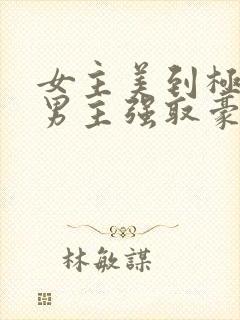 女主美到極
男主强取豪
林敏謀